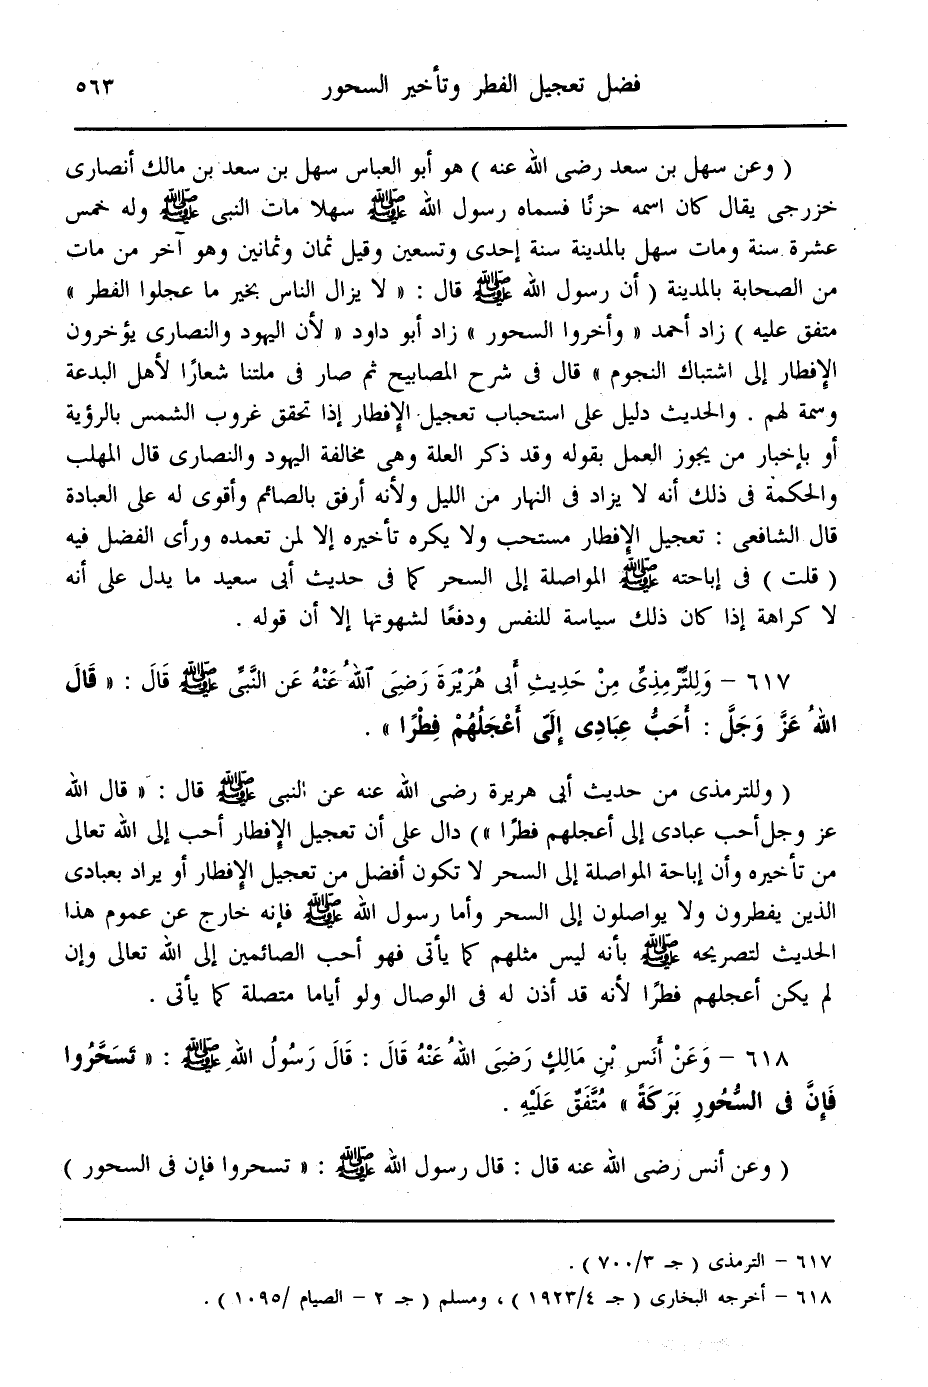 فضل تعجيل الفطر وتأخير السحور ٥٦٣
( وعن سهل بن سعد رضى الله عنه ) هو أبو العباس سهل بن سعد بن مالك أنصارى
خزرجى يقال كان اسمه حزنًا فسماه رسول الله ﷺ سهلا مات النبى ﷺ وله خمس
عشرة سنة ومات سهل بالمدينة سنة إحدى وتسعين وقيل ثمان وثمانين وهو آخر من مات
من الصحابة بالمدينة ( أن رسول الله ﷺ قال : « لا يزال الناس بخير ما عجلوا الفطر »
متفق عليه ) زاد أحمد « وأخروا السحور » زاد أبو داود « لأن اليهود والنصارى يؤخرون
الإفطار إلى اشتباك النجوم » قال فى شرح المصابيح ثم صار فى ملتنا شعارًا لأهل البدعة
وسمة لهم . والحديث دليل على استحباب تعجيل الإفطار إذا تحقق غروب الشمس بالرؤية
أو بإخبار من يجوز العمل بقوله وقد ذكر العلة وهى مخالفة اليهود والنصارى قال المهلب
والحكمة فى ذلك أنه لا يزاد فى النهار من الليل ولأنه أرفق بالصائم وأقوى له على العبادة
قال الشافعى : تعجيل الإفطار مستحب ولا يكره تأخيره إلا لمن تعمده ورأى الفضل فيه
( قلت ) فى إباحته ﷺ المواصلة إلى السحر كما فى حديث أبى سعيد ما يدل على أنه
لا كراهة إذا كان ذلك سياسة للنفس ودفعًا لشهوتها إلا أن قوله .
٦١٧ – وَلِلتِّرْمِذِىِّ مِنْ حَدِيثِ أَبِى هُرَيْرَةَ رَضِىَ اللهُ عَنْهُ عَنِ النَّبِىِّ ﷺ قَالَ : « قَالَ
اللهُ عَزَّ وَجَلَّ : أَحَبُّ عِبَادِى إِلَىَّ أَعْجَلُهُمْ فِطْرًا » .
( وللترمذى من حديث أبى هريرة رضى الله عنه عن النبى ﷺ قال : « قال الله
عز وجل أحب عبادى إلى أعجلهم فطرًا ») دال على أن تعجيل الإفطار أحب إلى الله تعالى
من تأخيره وأن إباحة المواصلة إلى السحر لا تكون أفضل من تعجيل الإفطار أو يراد بعبادى
الذين يفطرون ولا يواصلون إلى السحر وأما رسول الله ﷺ فإنه خارج عن عموم هذا
الحديث لتصريحه ﷺ بأنه ليس مثلهم كما يأتى فهو أحب الصائمين إلى الله تعالى وإن
لم يكن أعجلهم فطرًا لأنه قد أذن له فى الوصال ولو أياما متصلة كما يأتى .
٦١٨ – وَعَنْ أَنَسِ بْنِ مَالِكٍ رَضِىَ اللهُ عَنْهُ قَالَ : قَالَ رَسُولُ اللهِ ﷺ : « تَسَحَّرُوا
فَإِنَّ فى السُّحُورِ بَرَكَةً » مُتَّفَقٌ عَلَيْهِ .
( وعن أنس رضى الله عنه قال : قال رسول الله ﷺ : « تسحروا فإن فى السحور )
٦١٧ – الترمذى ( جـ ٣/ ٧٠٠ ) .
٦١٨ – أخرجه البخارى ( جـ ٤/ ١٩٢٣ ) ، ومسلم ( جـ ٢ – الصيام / ١٠٩٥ ) .